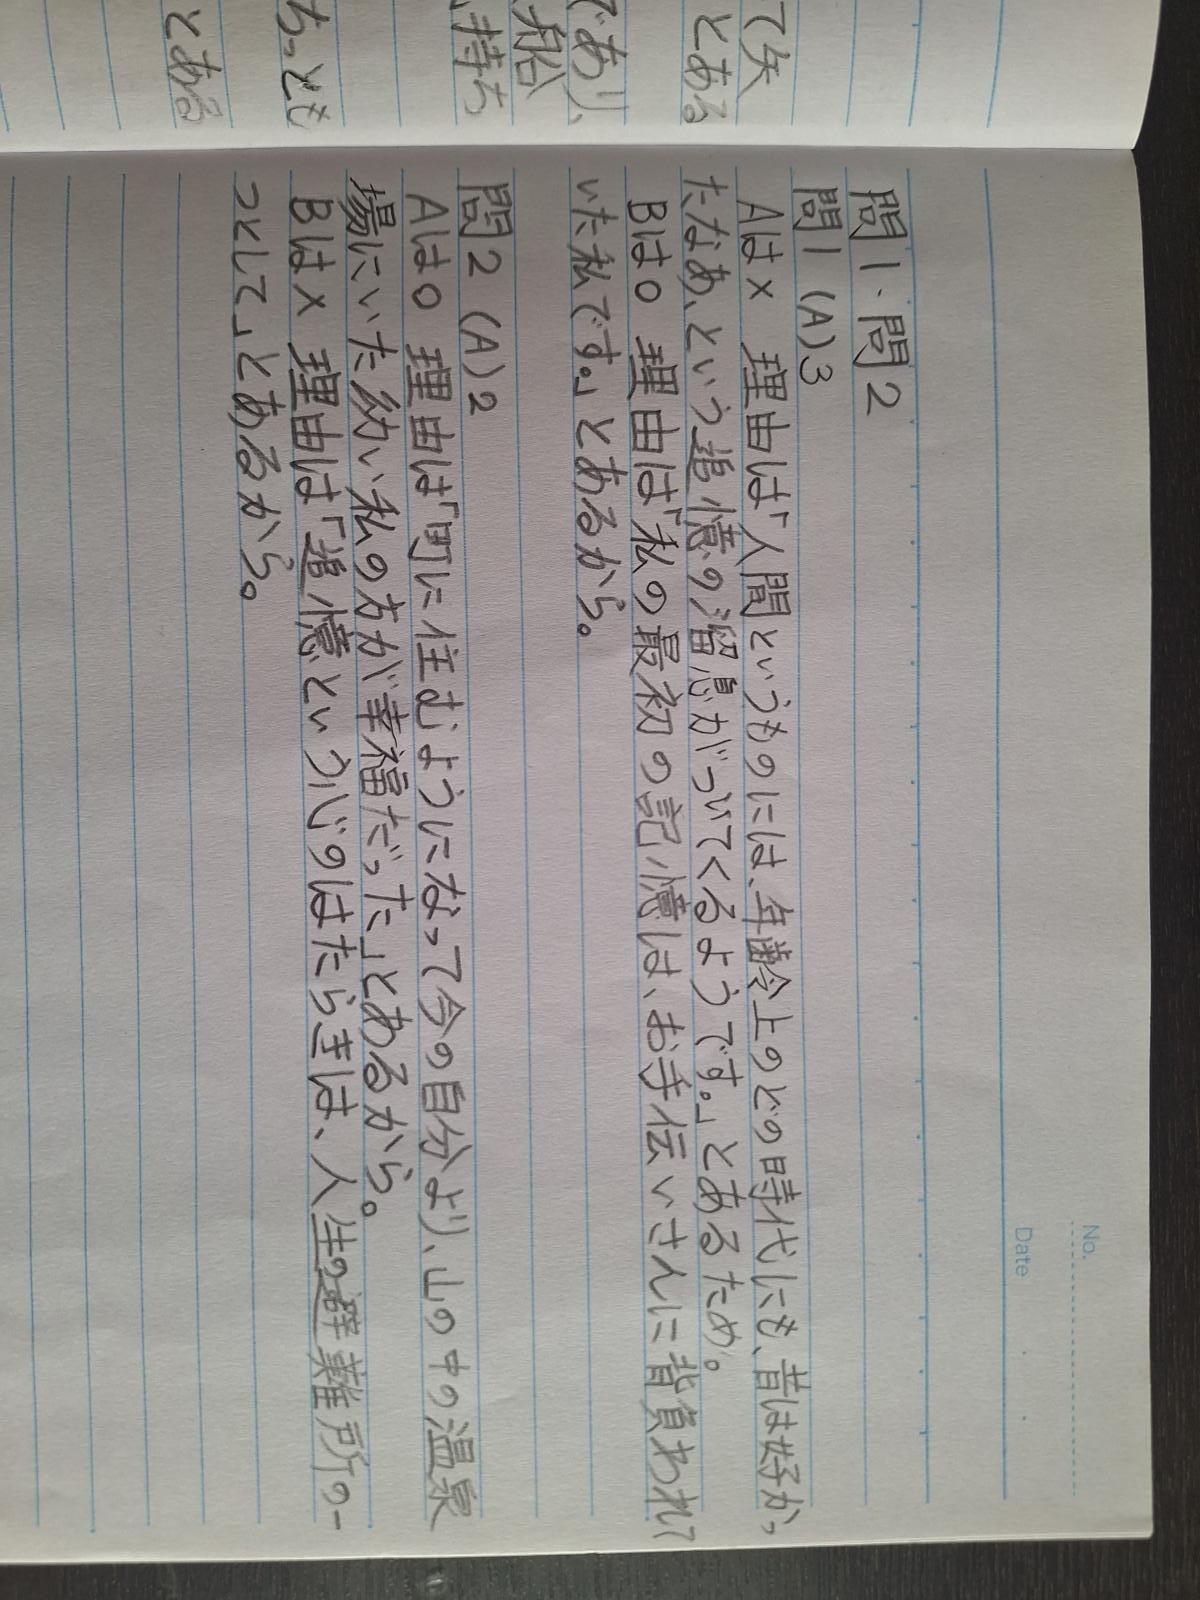 て矢
とある
であり、
船
持ち
ちっとも
とある
No.
Date
問1・問2
問1 (A)3
Aは× 理由は「人間というものには、年齢上のどの時代にも、昔は好かっ
たなあ、という追憶の溜息がついてくるようです。」とあるため。
Bは○ 理由は「私の最初の記憶は、お手伝いさんに背負われて
いた私です。」とあるから。
問2 (A)2
Aは○ 理由は「町に住むようになって今の自分より、山の中の温泉
場にいた幼い私の方が幸福だった」とあるから。
Bは× 理由は「追憶という心のはたらきは、人生の避難所の一
つとして」とあるから。